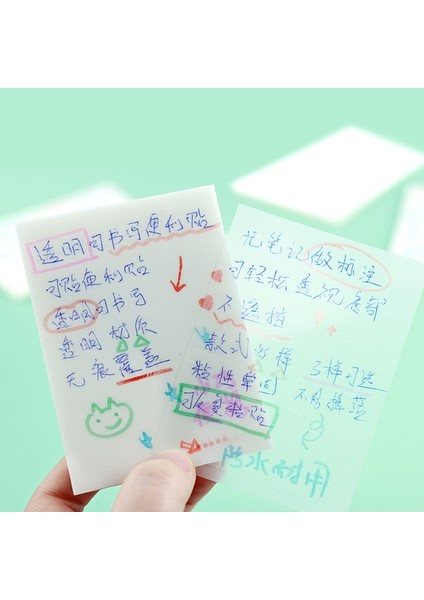 透明可书写便利贴
可贴便利贴
透明可书写
透明材质
无痕覆盖
无笔记做标注
可轻松重视底部
不遮挡
款式多样
3样可选
粘性牢固
不易掉落
可反复粘贴
防水耐用